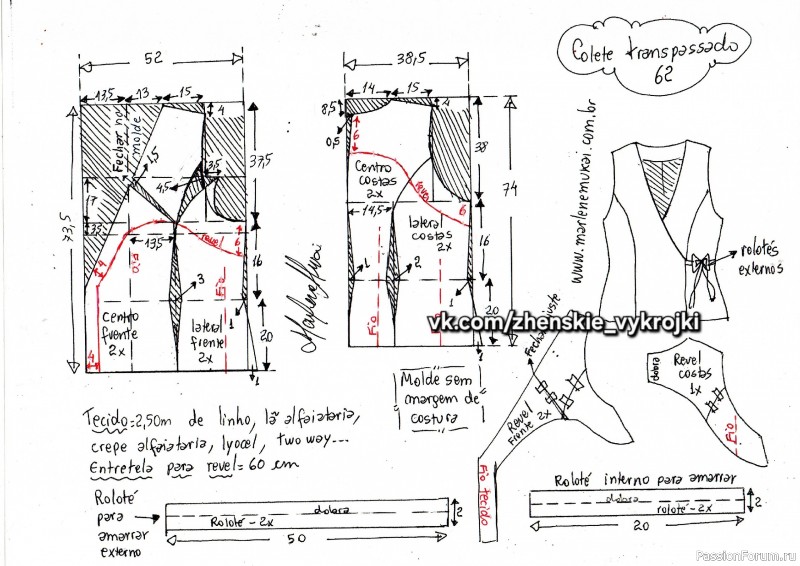 Colete transpassado
62
52
13,5
13
15
4
Fechar no
molde
1,5
3,5
4,5
37,5
17
3,5
73,5
13,5
revel
6
fio
4
3
16
1
20
centro
frente
2x
lateral
frente
2x
fio
4
1
38,5
14
15
4
8,5
0,5
6
centro
costas
2x
revel
38
74
14,5
6
lateral
costas
2x
16
1
2
1
20
Fio
fio
Marlene Mukai
www.marlenemukai.com.br
rolotés
externos
vk.com/zhenskie_vykrojki
Molde sem
margem de
costura
Fechar ajuste
Revel
Frente 2x
Fio tecido
dobra
Revel
costas
1x
Fio
Tecido=2,50m de linho, lã alfaiataria,
crepe alfaiataria, lyocel, two way...
Entretela para revel=60 cm
Roloté
para
amarrar
externo
dobra
Roloté-2x
2
50
Roloté interno para amarrar
dobra
roloté-2x
2
20
PassionForum.ru